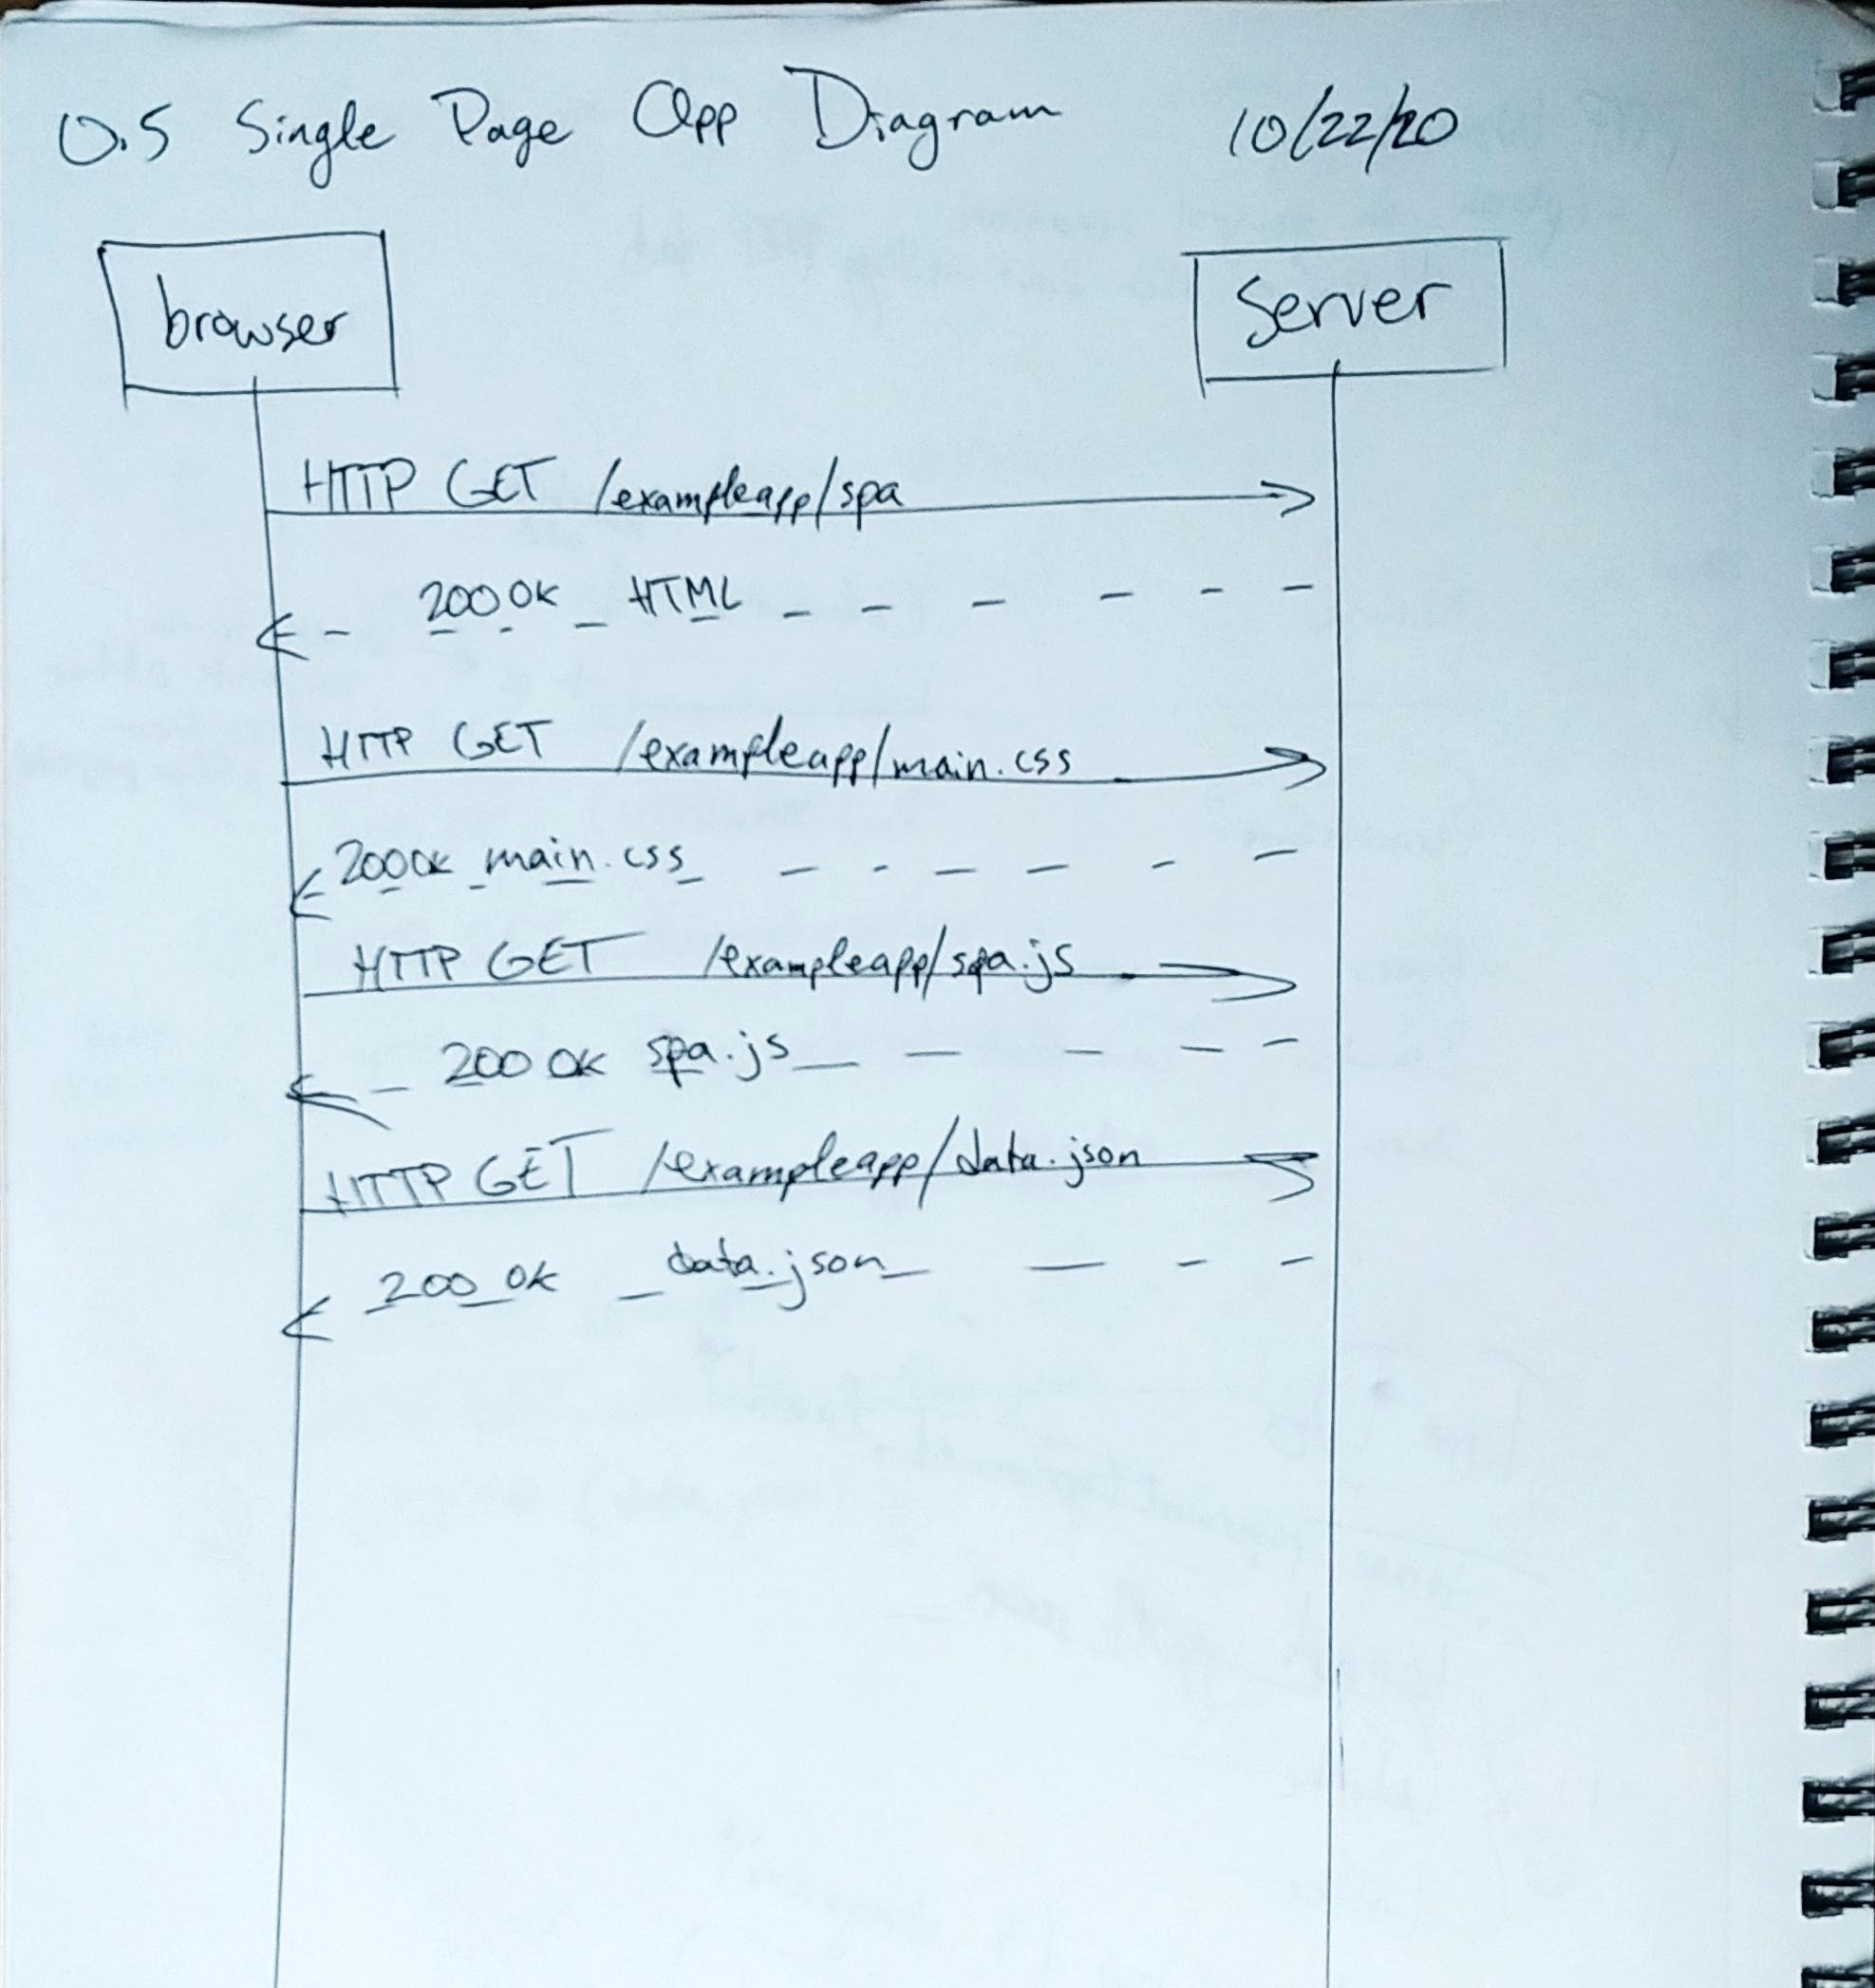 0.5 Single Page App Diagram 10/22/20
browser Server
HTTP GET /exampleapp/spa
200 OK HTML
HTTP GET /exampleapp/main.css
200 OK main.css
HTTP GET /exampleapp/spa.js
200 OK spa.js
HTTP GET /exampleapp/data.json
200 OK data.json